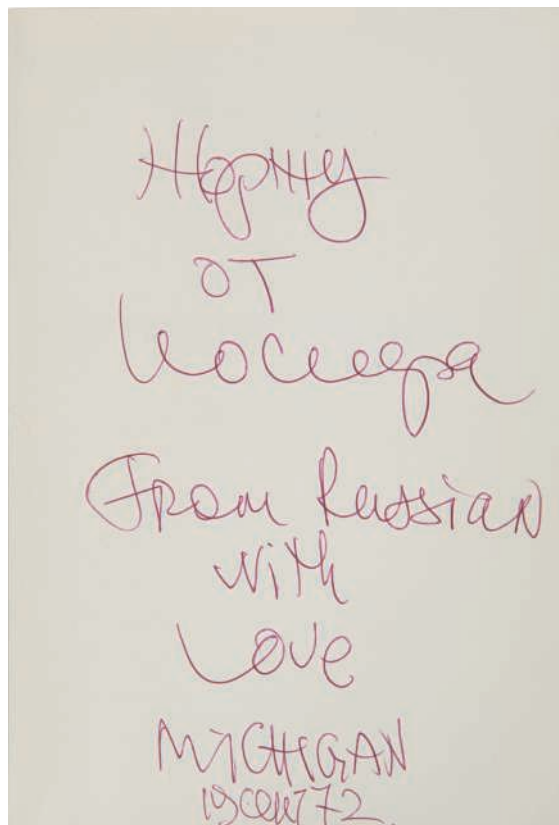 Жоржу
от
Иосифа
From Russian
with
Love
MICHIGAN
19 сент 72.